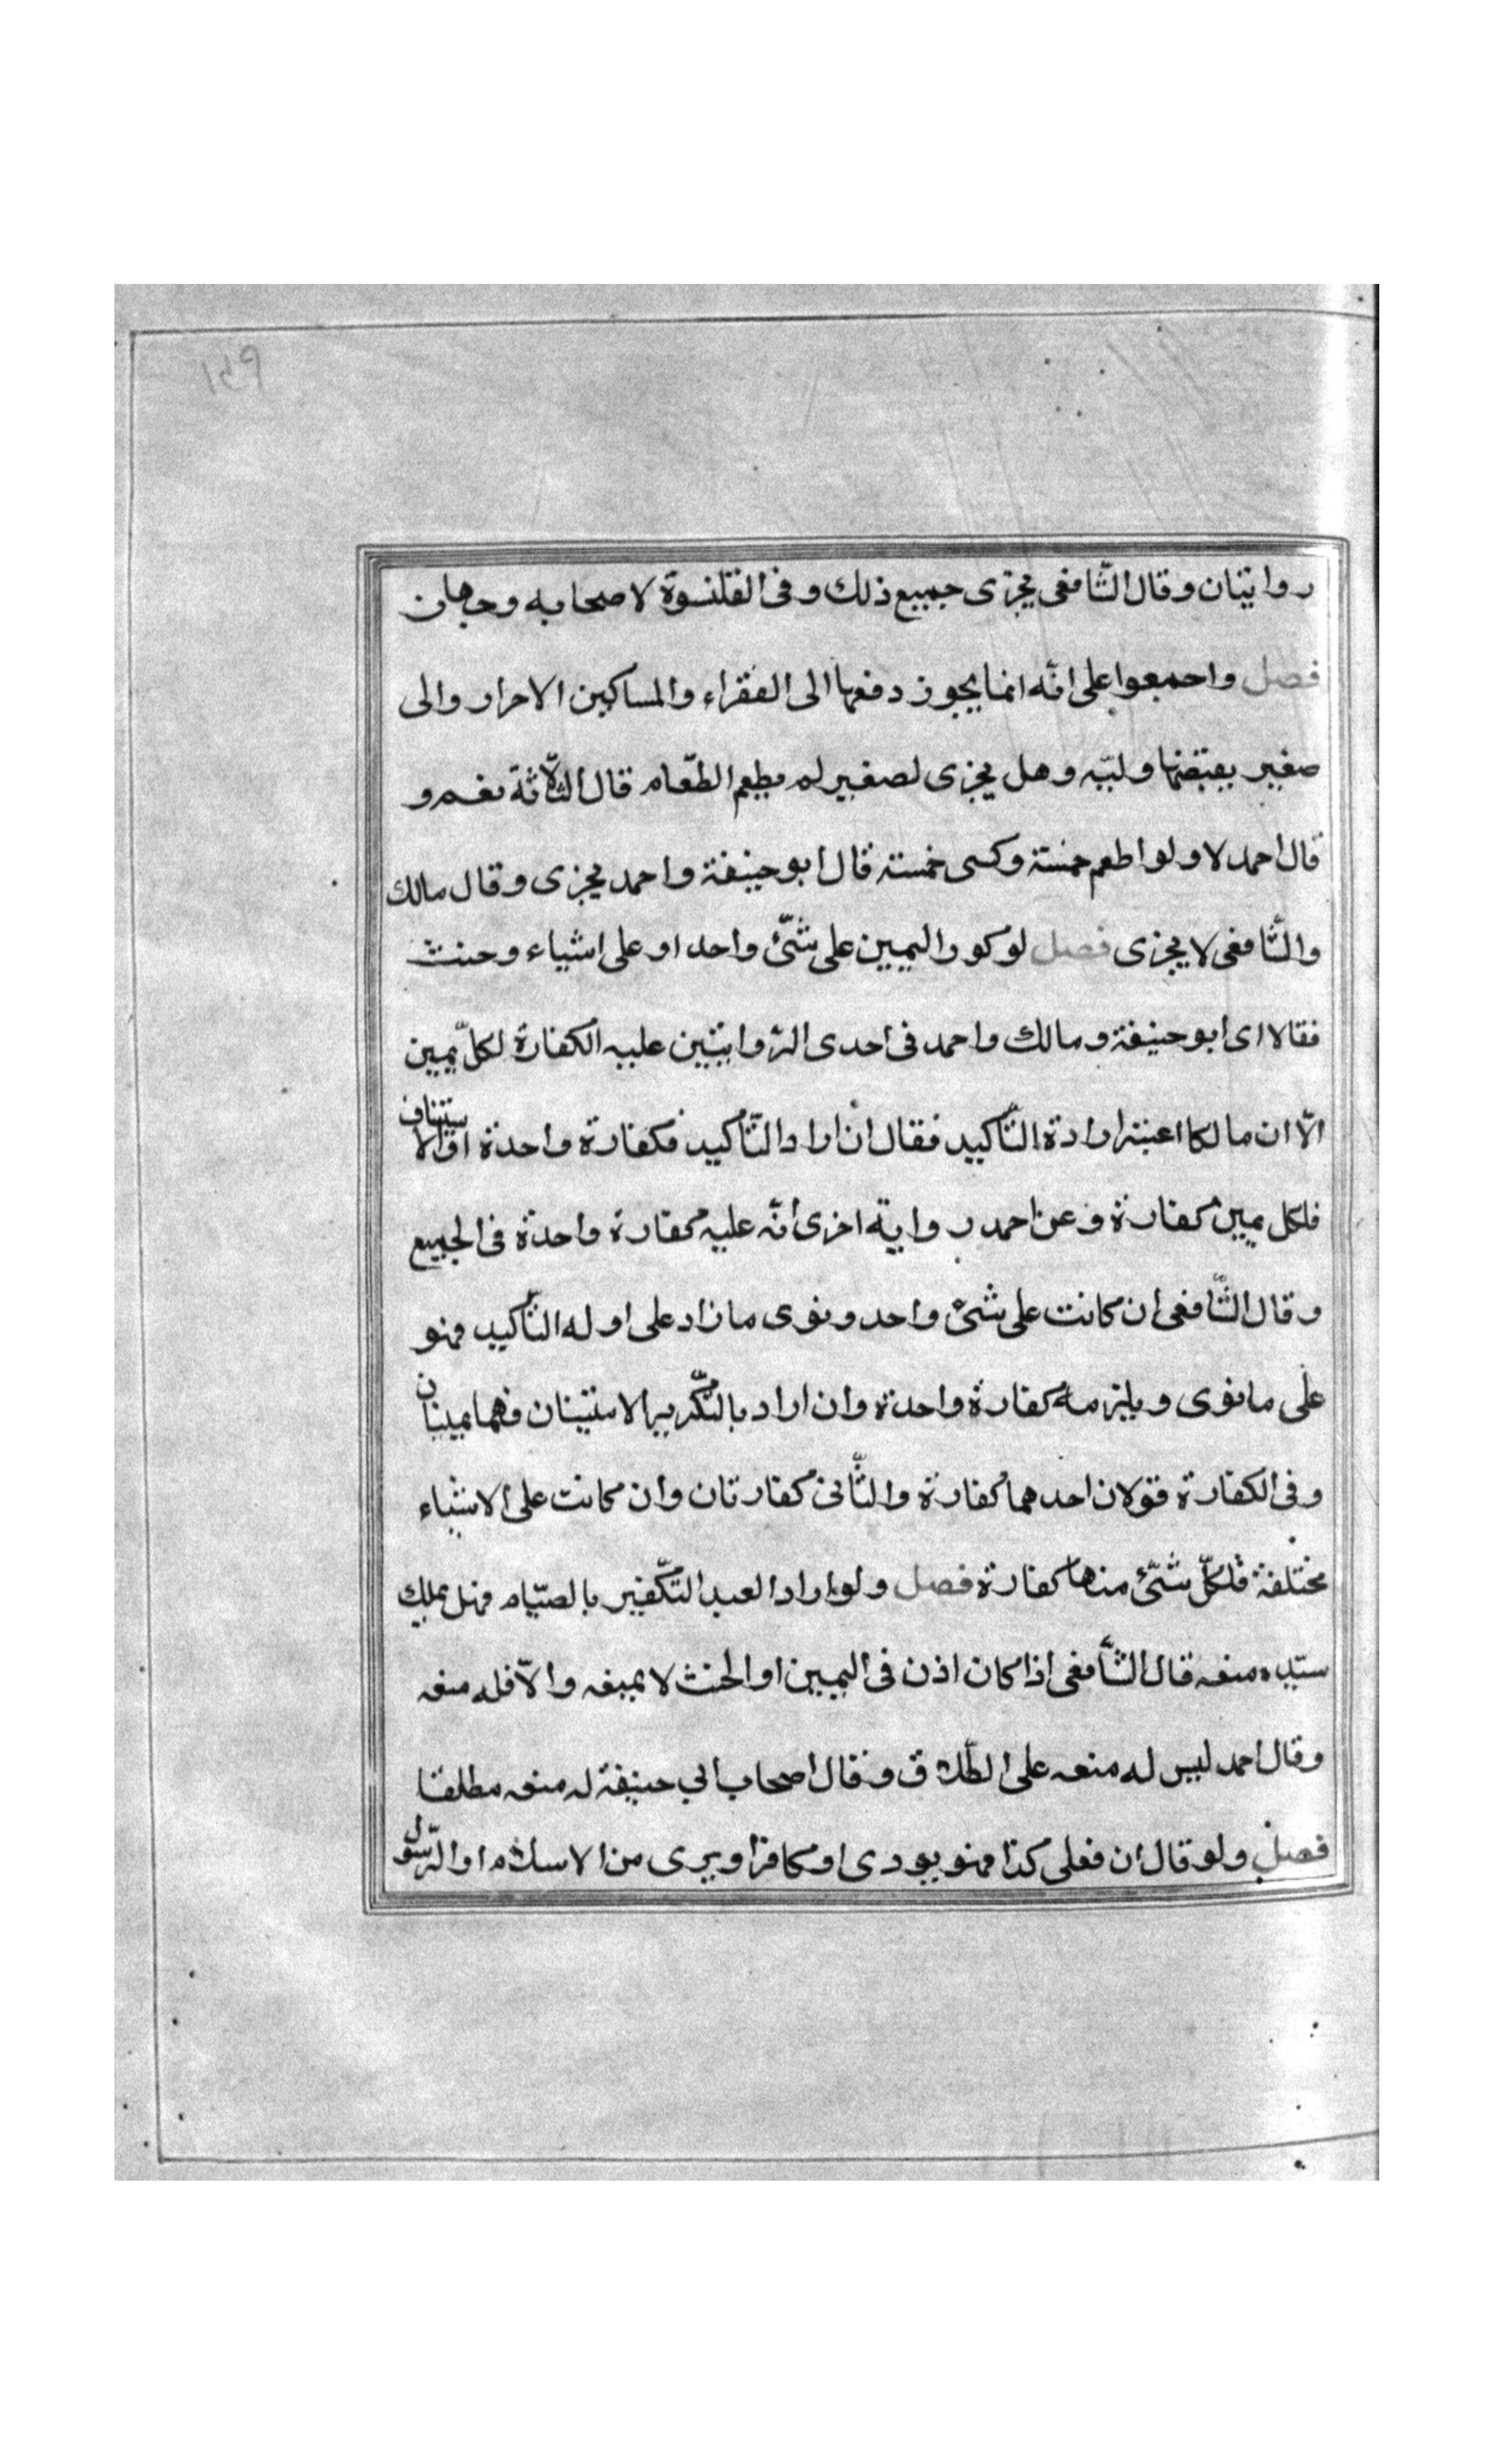 ١٤٩
روايتان وقال الشّافعى يجزى جميع ذلك و فى القلنسوة لاصحابه وجهان
فصل واجمعوا على انّه انما يجوز دفعها الى الفقراء والمساكين الاحرار والى
صغير يقبضها وليّه وهل يجزى لصغير لم يطعم الطّعام قال الثلاّثة نعم و
قال احمد لا ولو اطعم خمسة وكسى خمسة قال ابو حنيفة واحمد يجزى وقال مالك
والشّافعى لا يجزى فصل لو كرر اليمين على شّئ واحد او على اشياء وحنث
فقالا اى ابو حنيفة ومالك واحمد فى احدى الرّوايتين عليه الكفارة لكلّ يمين
الاّ ان مالكا اعتبر ارادة التّأكيد فقال ان اراد التّأكيد فكفارة واحدة او الاستيناف
فلكل يمين كفارة و عن احمد رواية اخرى أنّه عليه كفارة واحدة فى الجميع
وقال الشّافعى ان كانت على شئ واحد ونوى ما زاد على اوله التأكيد فهو
على ما نوى ويلزمه كفارة واحدة وان اراد بالتّكرير الاستينان فهما يمينان
وفى الكفارة قولان احدهما كفارة والثّانى كفارتان وان كانت على الاشياء
مختلفة فلكلّ شّئ منها كفارة فصل ولو اراد العبد التّكفير بالصّيام فهل يملك
سيّده منعه قال الشّافعى اذا كان اذن فى اليمين او الحنث لا يمنعه والاّ فله منعه
وقال احمد ليس له منعه على الطّلاق و قال اصحاب ابي حنيفة له منعه مطلقا
فصل ولو قال ان فعلى كذا فهو يودى او كافرا وبرى من الاسلام او الرّسول